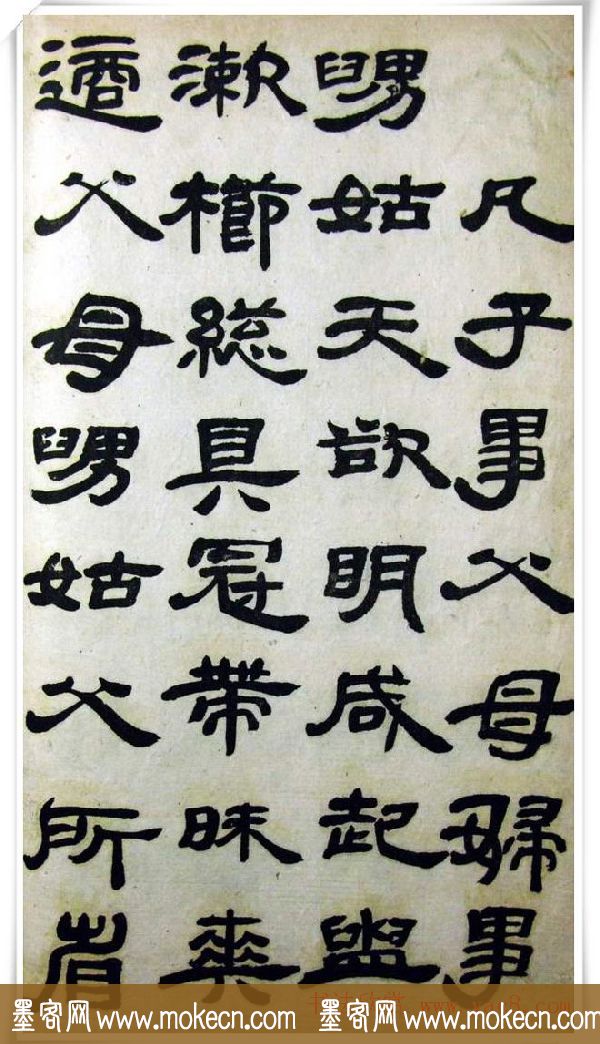 凡子事父母婦事
舅姑天欲明咸起盥
漱櫛総具冠帶昧爽
適父母舅姑父所省
墨客网 www.mokecn.com 墨客网 www.mokecn.com